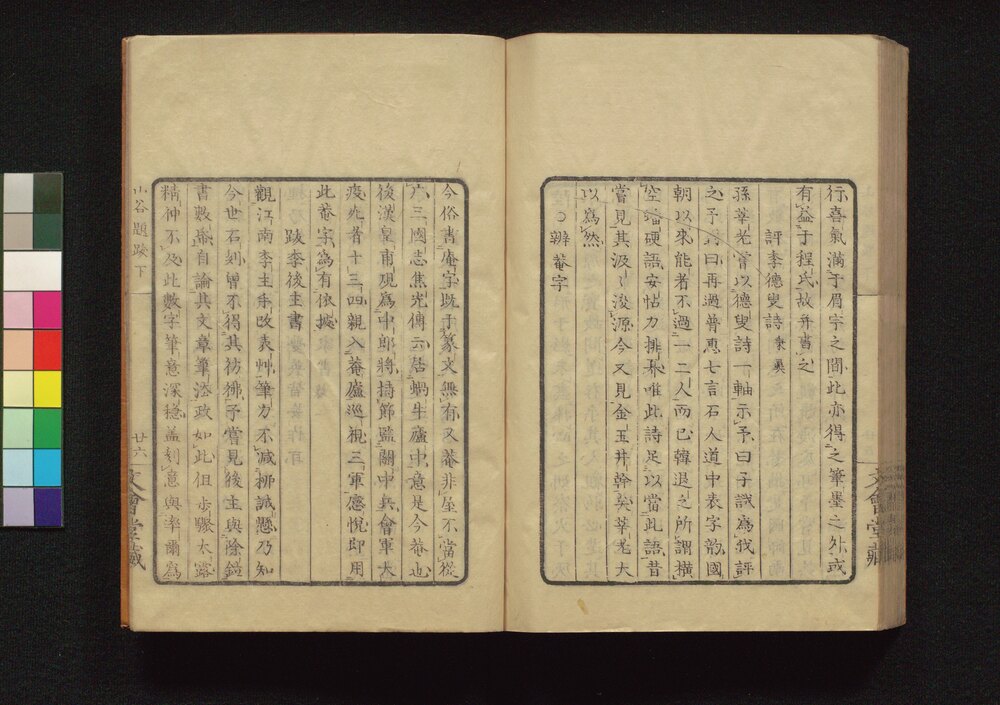 行喜氣滿于眉宇之間此亦得之筆墨之外或
有益于程氏故并書之
評李德叟詩
孫莘老嘗以德叟詩一軸示予曰子試為我評
之予對曰再過普惠七言石人道中表字韵國
朝以來能者不過一二人而已韓退之所謂橫
空盤硬語妥帖力排奡唯此詩足以當此語昔
嘗見其汲汲淡源今又見金玉井幹矣莘老大
以為然
○辨菴字
今俗書庵字既于篆文無有又菴非屋不當從
广三國志焦光傳云居蝸牛廬中意是今菴也
後漢皇甫規為中郎將持節監關中兵會軍大
疫死者十三四親入菴廬巡視三軍感悅即用
此菴字為有依據
跋李後主書
觀江南李主手改表艸筆力不減柳誠懸乃知
今世石刻曾不得其彷彿予嘗見後主與徐鉉
書數紙自論其文章筆法政如此但步驟太露
精神不及此數字筆意深穩蓋刻意與率爾為
山谷題跋下
廿六
文會堂藏
文會堂藏